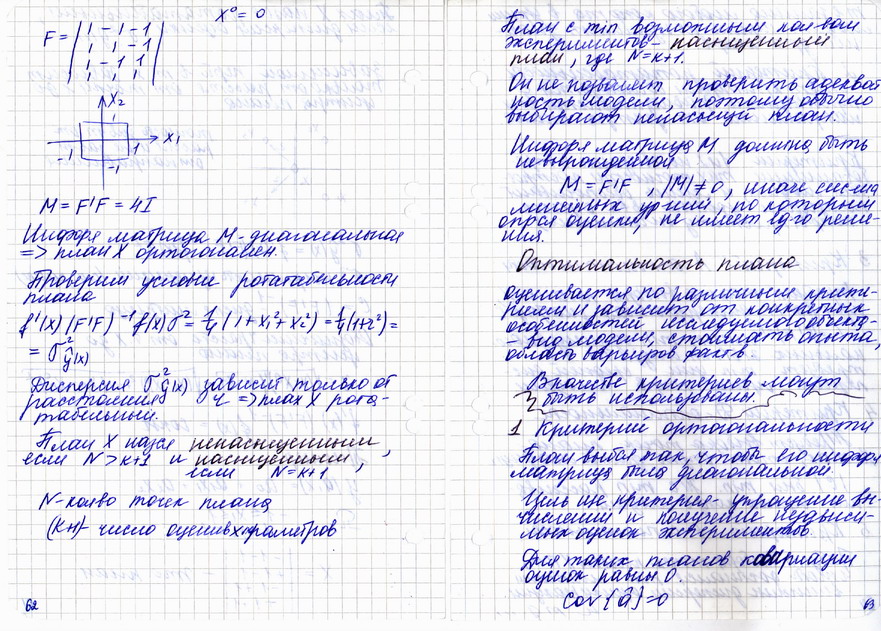 X⁰ = 0
F = | 1 -1 -1 |
1 1 -1
1 -1 1
1 1 1
X₂
1
X₁
-1 1
-1
M = F'F = 4I
Информ матрица M - диагональная
=> план X ортогонален.
Проверим условия рототабельности
плана
f'(x) (F'F)⁻¹ f(x) σ² = 1/4 (1 + x₁² + x₂²) = 1/4 (1+r²) =
= σ² ŷ(x)
Дисперсия σ² ŷ(x) зависит только от
расстояния r => план X рота-
табельный.
План X назся ненасыщенным,
если N > k+1 и насыщенным,
если N = k+1
N - колво точек плана
(k+1) - число оценив параметров
62
План с min возможным кол-вом
экспериментов - насыщенный
план, где N = k+1.
Он не позволяет проверить адекват
ность модели, поэтому обычно
выбирают ненасыщ план.
Информ матрица M должна быть
невырожденной
M = F'F, |M| ≠ 0, иначе система
линейных ур-ний, по которым
опрся оценки, не имеет ед-го реше-
ния.
Оптимальность плана
оценивается по различным крите-
риям и зависит от конкретных
особенностей исследуемого объекта-
- вид модели, стоимость опыта,
область варьиров факт в.
В качестве критериев могут
быть использованы.
1 Критерий ортогональности
План выбся так, чтобы его информ
матрица была диагональной.
Цель критерия - упрощение вы-
числений и получение независи-
мых оценок экспериментов
Для таких планов ковариации
оценок равны 0.
Cov{â} = 0
63